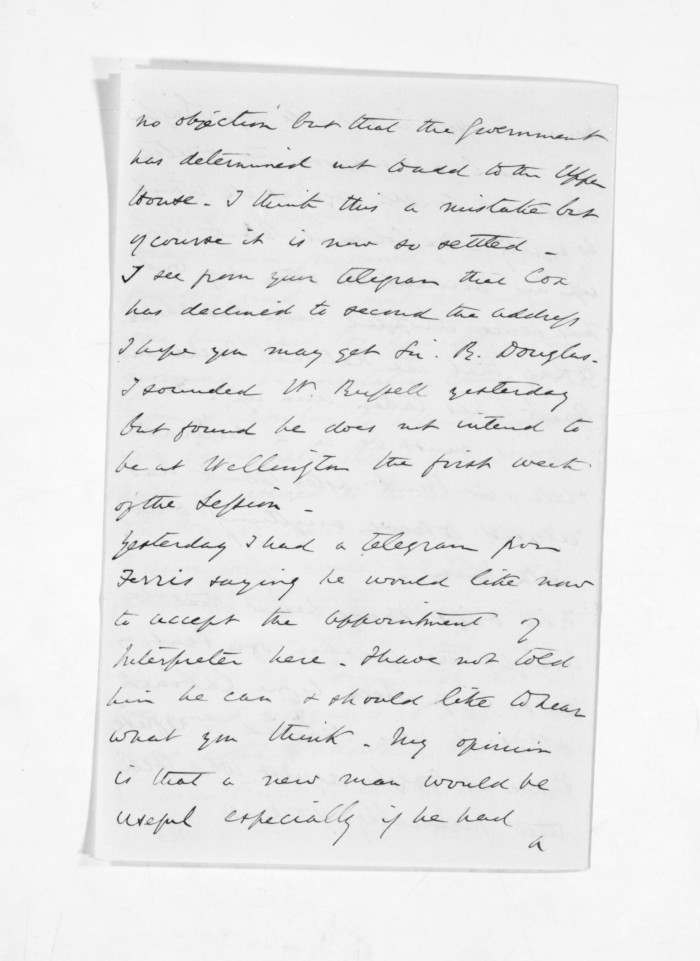 no objection but that the Government
has determined not to add to the Upper
House - I think this a mistake but
of course it is now so settled -
I see from your telegram that Cox
has declined to second the address
I hope you may get Sir. R. Douglas -
I sounded W. Russell yesterday
but found he does not intend to
be at Wellington the first week
of the Session -
Yesterday I had a telegram from
Ferris saying he would like now
to accept the appointment of
Interpreter here - I have not told
him he can & should like to hear
what you think - My opinion
is that a new man would be
useful especially if he had
a